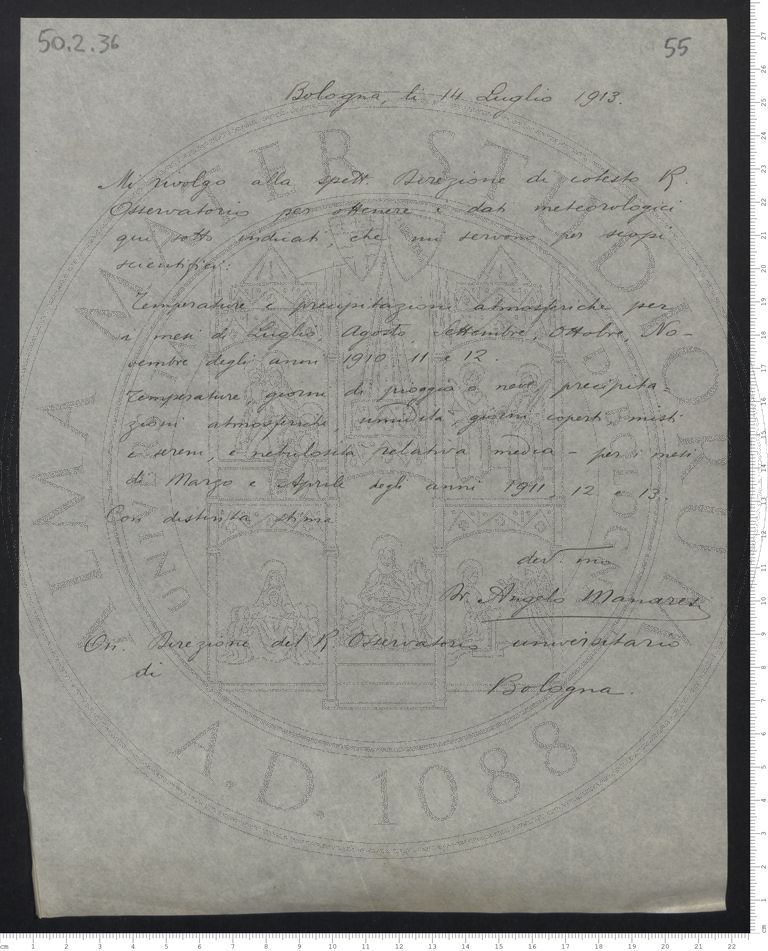 50.2.36
55
Bologna, li 14 Luglio 1913.
Mi rivolgo alla spett. Direzione di cotesto R.
Osservatorio per ottenere i dati meteorologici
qui sotto indicati, che mi servono per scopi
scientifici:
Temperature e precipitazioni atmosferiche per
i mesi di Luglio Agosto Settembre, Ottobre, No-
vembre degli anni 1910 11 e 12.
Temperature, giorni di pioggia o neve, precipita-
zioni atmosferiche, umidità, giorni coperti, misti
e sereni, e nebulosità relativa media - per i mesi
di Marzo e Aprile degli anni 1911, 12 e 13.
Con distinta stima
dev. mo
Dr. Angelo Manaresi
On. Direzione del R. Osservatorio universitario
di
Bologna.
ALMA MATER STUDIORUM
A.D. 1088